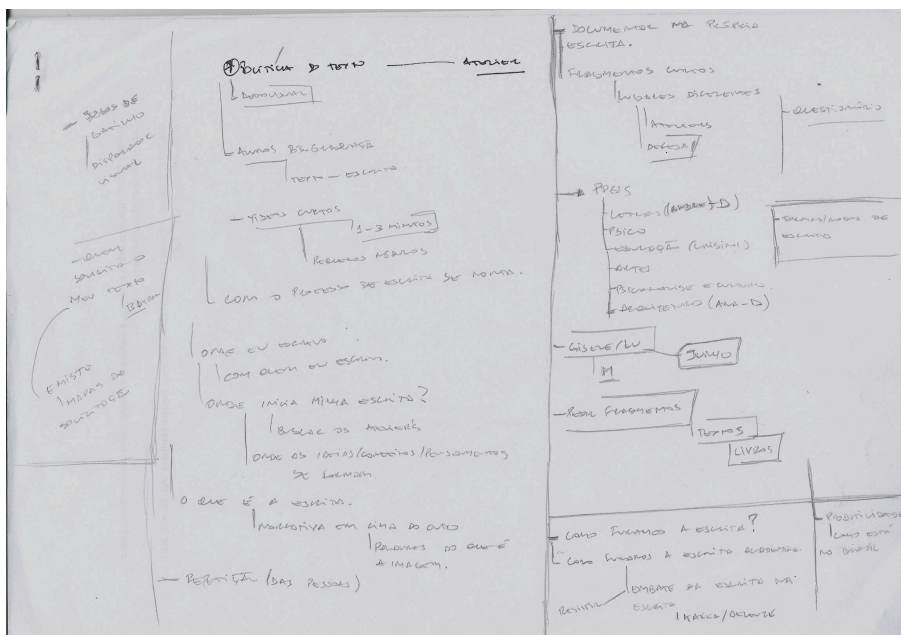 - JOGOS DE
GATILHO
DISPARADOR
- QUEM
SOLICITA O
MEU TEXTO
EXISTE
MAPAS DE
SOLICITAÇÃO
POLÍTICA DO TEXTO — ATELIER
- ALUNOS
TEXTO - ESCRITA
- VIDEOS CURTOS
1-3 MINUTOS
COM O PROCESSO DE ESCRITA SE
ONDE EU ESCREVO
COM QUEM EU ESCREVO.
ONDE INICIA MINHA ESCRITA?
BUSCAR OS ATELIERS
ONDE AS IDEIAS/CONCEITOS/PENSAMENTOS
SE FORMAM
O QUE É A ESCRITA.
NARRATIVA EM CIMA DO OUTRO
PALAVRAS DO QUE É
A IMAGEM.
- REPETIÇÃO (DAS PESSOAS)
DOCUMENTAR NA PRÓPRIA
ESCRITA.
FRAGMENTOS CURTOS
LUGARES DIFERENTES
ATELIERS
DEFESA
- QUESTIONÁRIO
PPGS
- LETRAS
PSICO
- EDUCAÇÃO (UNISINOS)
- ARTES
- PSICANÁLISE E CULTURA
- ARQUITETURA (ANA-D)
- FORMAS/MODOS DE
ESCRITA
- GISELE/LU
JUNHO
M
- PEDIR FRAGMENTOS
TEXTOS
LIVROS
- COMO FUGAMOS A ESCRITA?
- COMO FUGAMOS A ESCRITA ACADEMICA.
EMBATE DA ESCRITA NA
ESCRITA
KAFKA/DELEUZE
- PRODUTIVIDADE
COMO ESTÁ
NO BRASIL